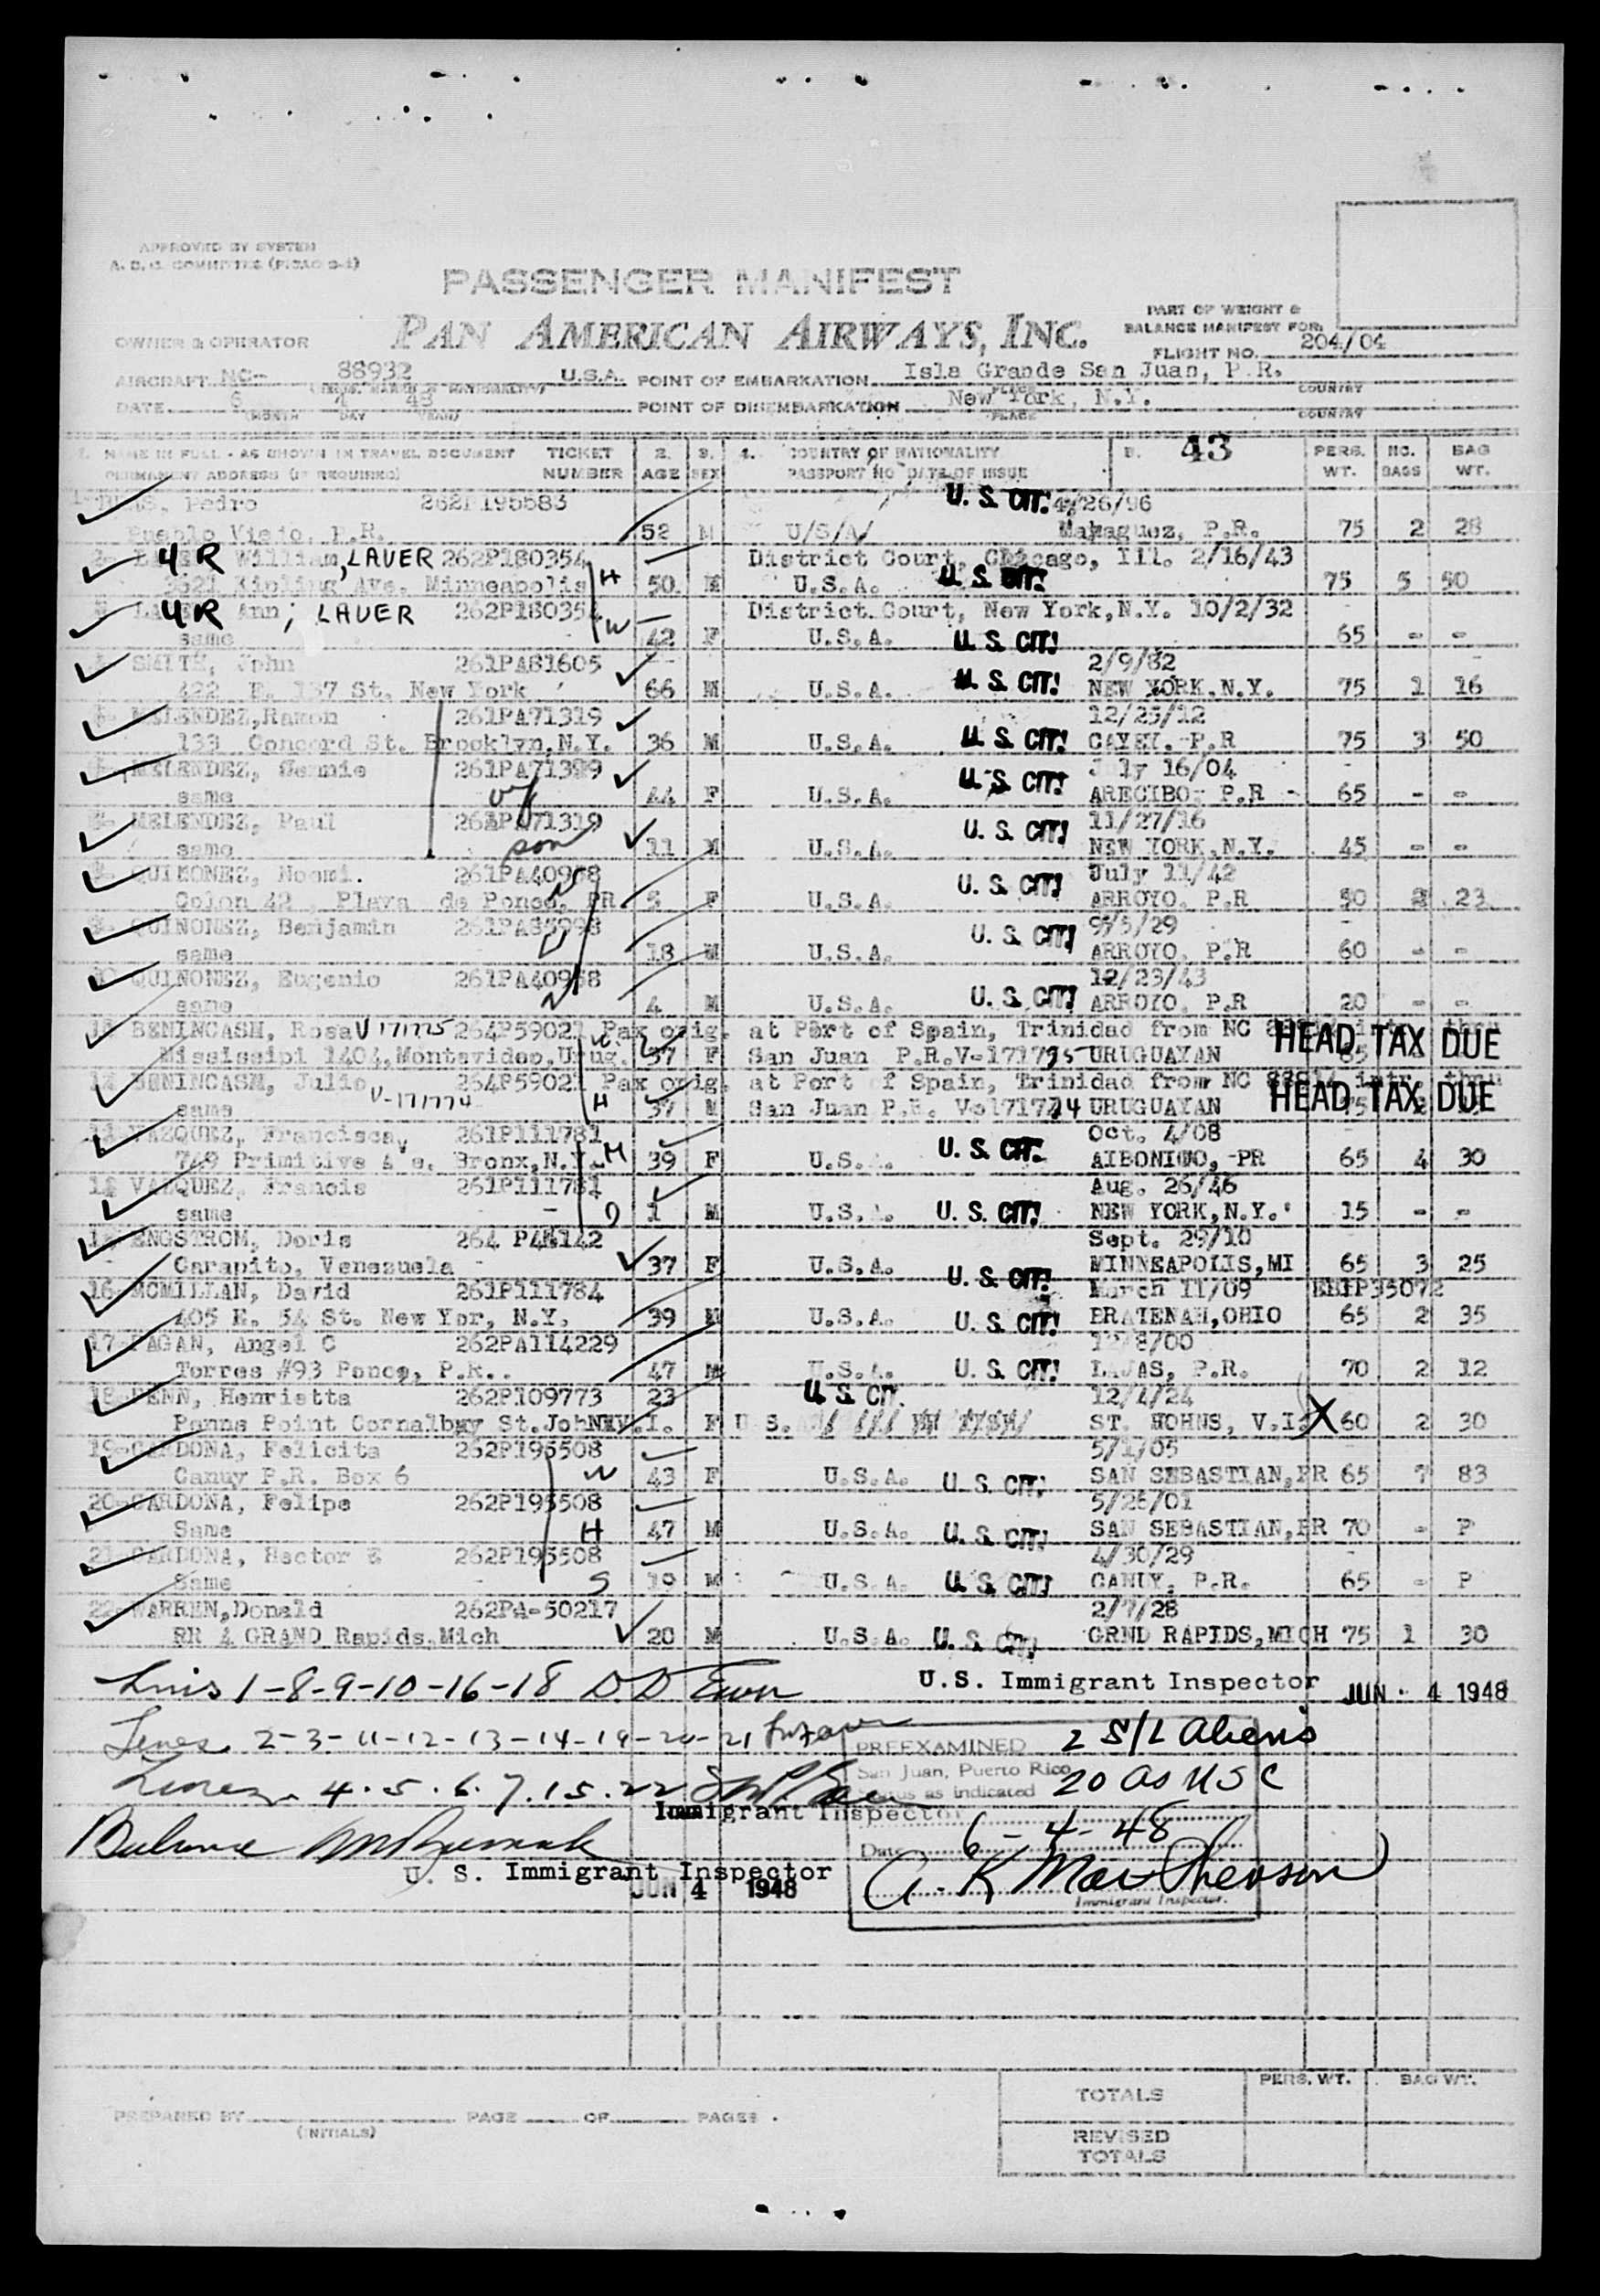 APPROVED BY SYSTEM
A. D. C. COMMITTEE
PASSENGER MANIFEST
PART OF WEIGHT &
BALANCE MANIFEST FOR:
OWNER & OPERATOR
PAN AMERICAN AIRWAYS, INC.
FLIGHT NO. 204/04
AIRCRAFT NC- 88932 U.S.A. POINT OF EMBARKATION Isla Grande San Juan, P.R.
PLACE COUNTRY
DATE 6 4 48 POINT OF DISEMBARKATION New York, N.Y.
MONTH DAY YEAR PLACE COUNTRY
1. NAME IN FULL - AS SHOWN IN TRAVEL DOCUMENT TICKET 2. 3. 4. COUNTRY OF NATIONALITY 5. 43 PERS. NO. BAG
PERMANENT ADDRESS (IF REQUIRED) NUMBER AGE SEX PASSPORT NO DATE OF ISSUE WT. BAGS WT.
Pedro 262P195583 U. S. CIT. 4/26/96
Pueblo Viejo, P.R. 52 M U/S/A/ Mayaguez, P.R. 75 2 28
4R William, LAUER 262P180354 District Court, Chicago, Ill. 2/16/43
2621 Kipling Ave. Minneapolis H 50 M U.S.A. U. S. CIT! 75 5 50
4R Ann; LAUER 262P180354 District Court, New York, N.Y. 10/2/32
same W 42 F U.S.A. U. S. CIT! 65 - -
SMITH, John 261PA81605 2/9/82
422 E. 137 St. New York 66 M U.S.A. U. S. CIT! NEW YORK, N.Y. 75 1 16
MELENDEZ, Ramon 261PA71319 12/25/12
133 Concord St. Brooklyn, N.Y. 36 M U.S.A. U. S. CIT! CAYEY. P.R 75 3 50
MELENDEZ, 261PA71399 July 16/04
same 44 F U.S.A. U. S. CIT! ARECIBO, P.R - 65 - -
MELENDEZ, Paul 261PA71319 11/27/16
same son 11 M U.S.A. U. S. CIT! NEW YORK, N.Y. 45 - -
QUINONEZ, Noemi. 261PA40958 July 11/42
Colon 42, Playa de Ponce, PR 5 F U.S.A. U. S. CIT! ARROYO. P.R 50 2 23
QUINONEZ, Benjamin 261PA 9/5/29
same 18 M U.S.A. U. S. CIT! ARROYO, P.R 60 - -
10 QUINONEZ, Eugenio 261PA40958 12/23/43
same 4 M U.S.A. U. S. CIT! ARROYO, P.R 20 - -
BENINCASM, Rosa V 171775 264P59021 Pax orig. at Port of Spain, Trinidad from NC thru
Mississipi 1404, Montevideo, Urug. 37 F San Juan P.R. V-171775 URUGUAYAN HEAD TAX DUE
12 BENINCASM, Julio V-171774 264P59021 Pax orig. at Port of Spain, Trinidad from NC intr. thru
same H 37 M San Juan P.R. V-171774 URUGUAYAN HEAD TAX DUE
VAZQUEZ, Francisca 261P111781 Oct. 4/08
749 Primitive Ave. Bronx, N.Y. M 39 F U.S.A. U. S. CIT. AIBONITO, PR 65 4 30
VAZQUEZ, Francis 261P111781 Aug. 26/46
same 1 M U.S.A. U. S. CIT! NEW YORK, N.Y. 15 - -
ENGSTROM, Doris 264 Sept. 29/10
Carapito, Venezuela 37 F U.S.A. U. S. CIT! MINNEAPOLIS, MI 65 3 25
16- MCMILLAN, David 261P111784 March 11/09 35072
405 E. 54 St. New Yor, N.Y. 39 M U.S.A. U. S. CIT! BRATENAH, OHIO 65 2 35
17- PAGAN, Angel C 262PA114229 12/8/00
Torres #93 Ponce, P.R.. 47 M U.S.A. U. S. CIT! LAJAS, P.R. 70 2 12
18- PENN, Henrietta 262P109773 23 U. S. CIT. 12/4/24
Panns Point Cornalbay St. John V.I. F U.S. ST. HOHNS, V.I. X 60 2 30
19- CARDONA, Felicita 262P195508 5/1/05
Canuy P.R. Box 6 W 43 F U.S.A. U. S. CIT. SAN SEBASTIAN, PR 65 7 83
20- CARDONA, Felipe 262P195508 5/26/01
Same H 47 M U.S.A. U. S. CIT! SAN SEBASTIAN, PR 70 - P
21- CARDONA, Hector 262P195508 4/30/29
Same S 19 M U.S.A. U. S. CIT! CANUY, P.R. 65 - P
22- WARREN, Donald 262PA-50217 2/7/28
RR 4 GRAND Rapids, Mich 20 M U.S.A. U. S. CIT! GRND RAPIDS, MICH 75 1 30
Lines 1-8-9-10-16-18 U.S. Immigrant Inspector JUN 4 1948
Lines 2-3-11-12-13-14-19-20-21
PREEXAMINED 2 S/L Aliens
San Juan, Puerto Rico
Lines 4.5.6.7.15.22 Status as indicated 20 as USC
Immigrant Inspector
Date 6-4-48
Balance
U. S. Immigrant Inspector A. K. MacPherson
JUN 4 1948 Immigrant Inspector.
TOTALS PERS. WT. BAG WT.
PREPARED BY PAGE OF PAGES
(INITIALS)
REVISED
TOTALS